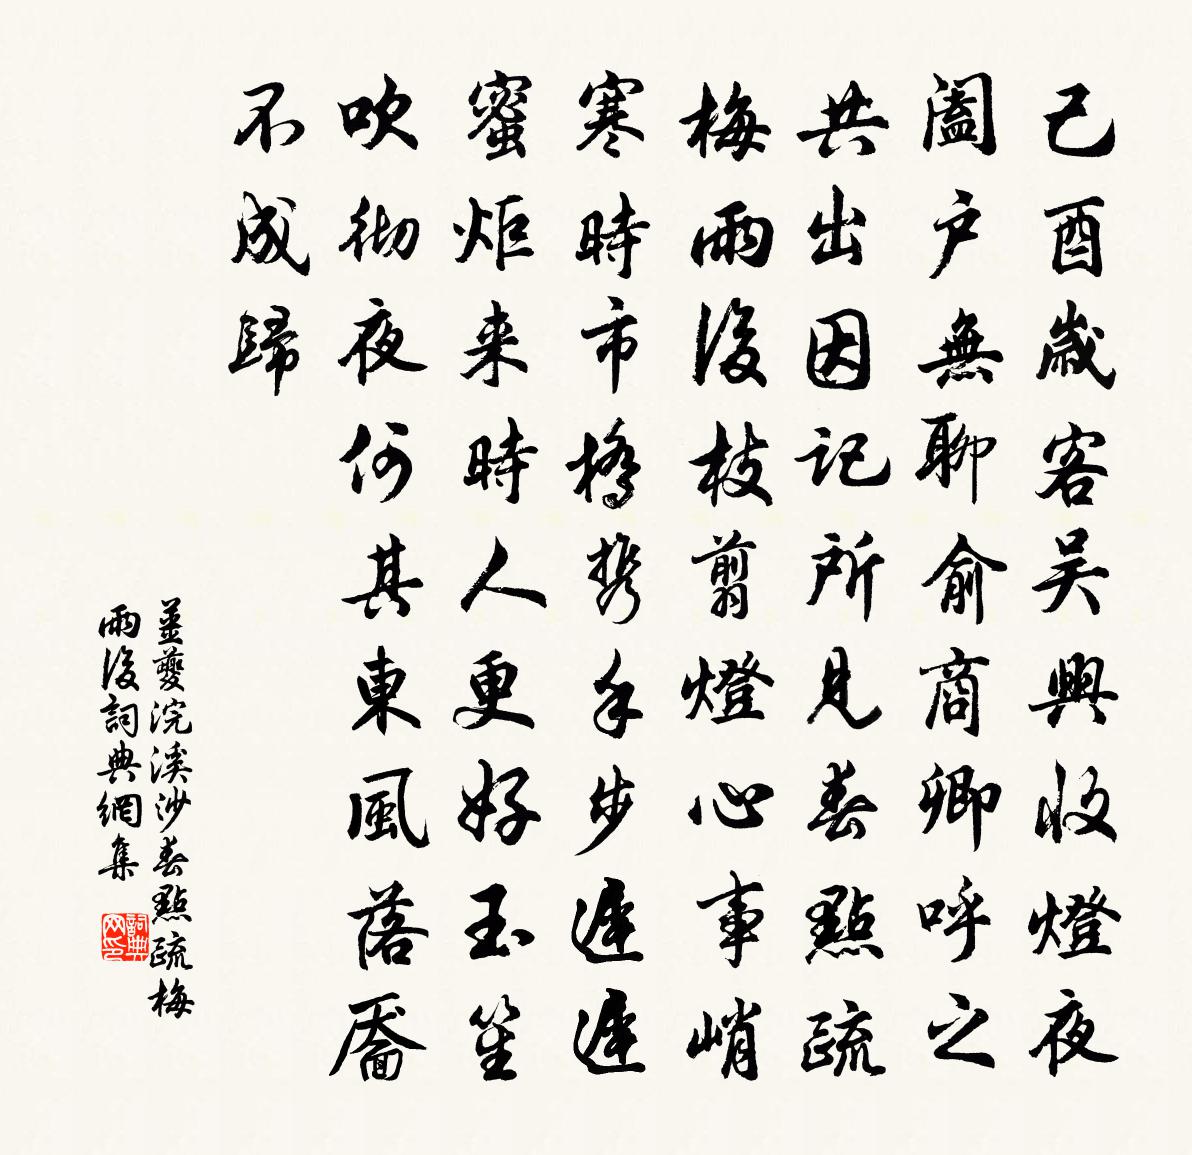 己酉歲客吴興收燈夜
闔户無聊俞商卿呼之
共出因記所見春點疏
梅雨後枝翦燈心事峭
寒時市橋攜手步遲遲
蜜炬来時人更好玉笙
吹彻夜何其東風落靨
不成歸
姜夔浣溪沙春點疏梅
雨後詞典網集
詞典网印